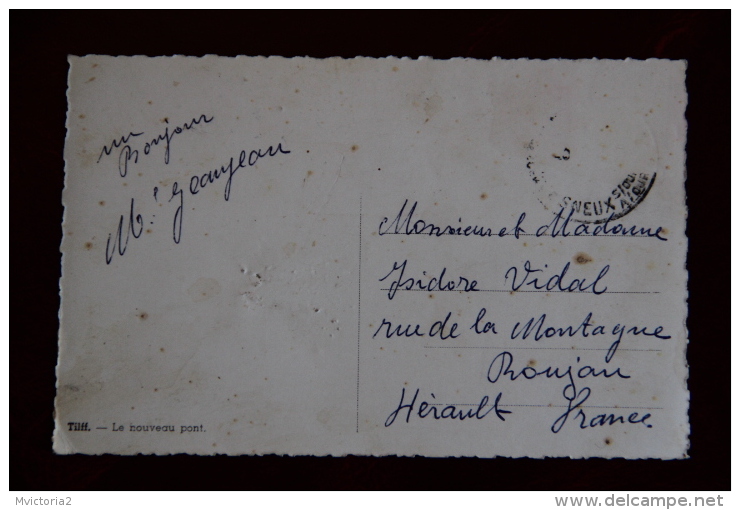 un
Bonjour
Mr Jeanjean
Monsieur et Madame
Isidore Vidal
rue de la Montagne
Roujan
Hérault France
Tilff. — Le nouveau pont.
SNEUX
Mvictoria2
http://www.delcampe.net